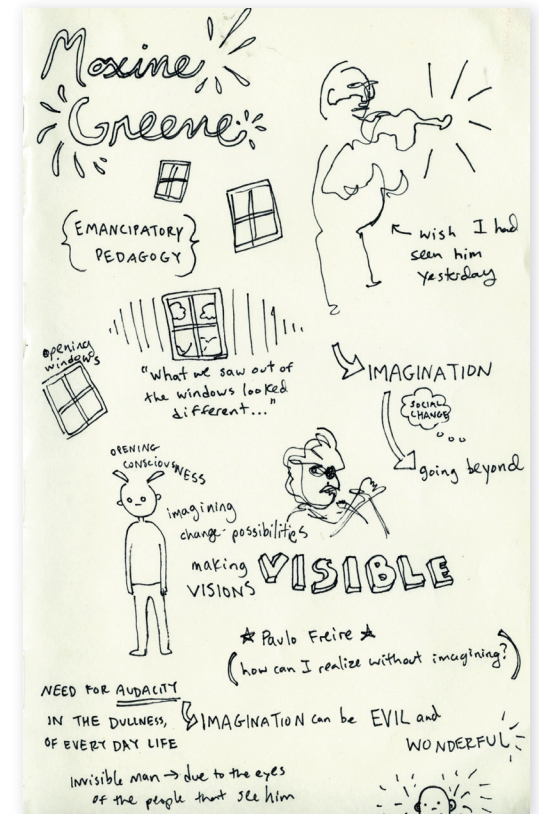 Maxine
Greene
EMANCIPATORY
PEDAGOGY
wish I had
seen him
yesterday
opening
windows
"What we saw out of
the windows looked
different..."
IMAGINATION
SOCIAL
CHANGE
going beyond
OPENING
CONSCIOUSNESS
imagining
change possibilities
making
VISIONS VISIBLE
Paulo Freire
(how can I realize without imagining?)
NEED FOR AUDACITY
IN THE DULLNESS,
OF EVERY DAY LIFE
IMAGINATION can be EVIL and
WONDERFUL
Invisible man → due to the eyes
of the people that see him